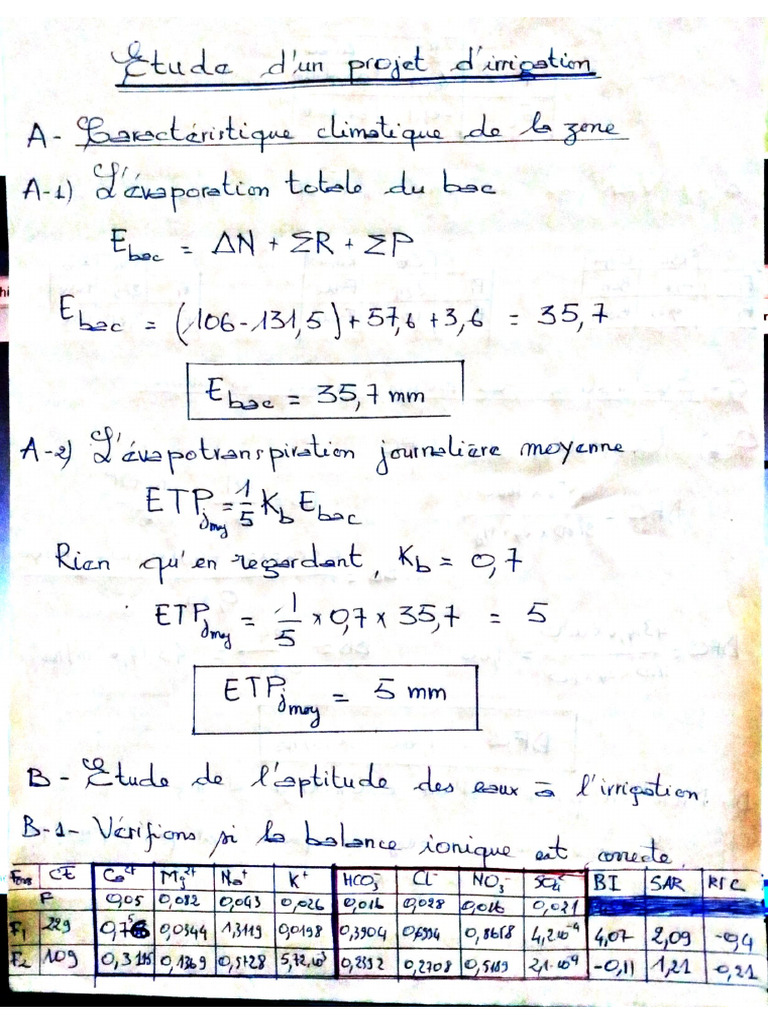 Etude d'un projet d'irrigation
A- Caractéristique climatique de la zone
A-1) L'évaporation totale du bac
E_bac = ΔN + ΣR + ΣP
E_bac = (106-131,5)+57,6+3,6 = 35,7
E_bac = 35,7 mm
A-2) L'évapotranspiration journalière moyenne
ETP_jmoy = 1/5 K_b E_bac
Rien qu'en regardant, K_b = 0,7
ETP_jmoy = 1/5 × 0,7 × 35,7 = 5
ETP_jmoy = 5 mm
B - Etude de l'aptitude des eaux à l'irrigation.
B-1- Vérifions si la balance ionique est correcte.
CE Ca²⁺ Mg²⁺ Na⁺ K⁺ HCO₃⁻ Cl⁻ NO₃⁻ SO₄²⁻ BI SAR
F 0,05 0,082 0,043 0,026 0,016 0,028 0,016 0,021
F₁ 229 0,0544 1,3119 0,0198 0,3904 0,8618 4,2.10⁻⁴ 4,07 2,09 -0,4
F₂ 109 0,3195 0,1369 0,5728 5,72.10⁻³ 0,2592 0,2708 0,5189 2,1.10⁻⁴ -0,11 1,21 0,21